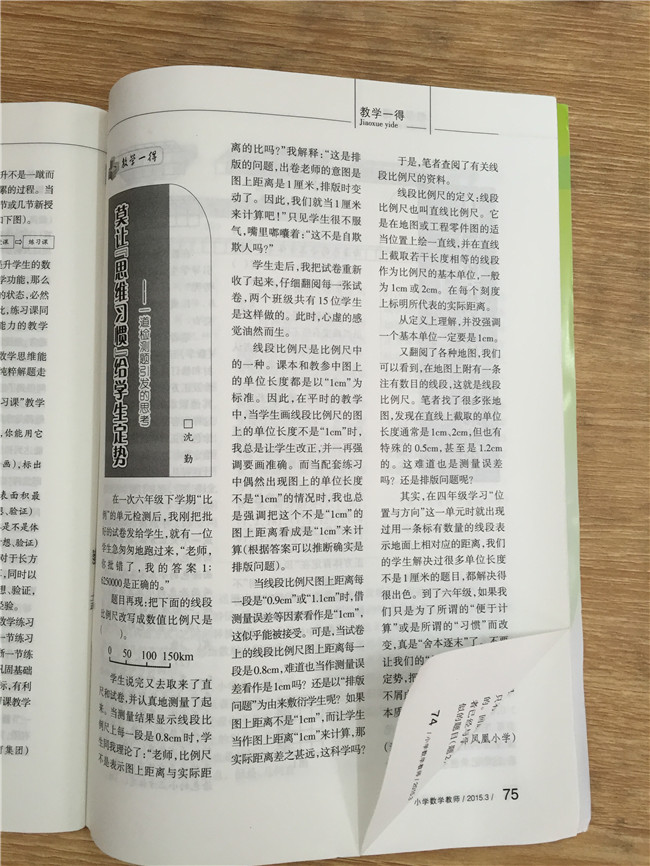 升不是一蹴而
累的过程。当
节或几节新授
如下图)。
课 ⇨ 练习课
是升学生的数
学功能,那么
的状态,必然
比,练习课同
能力的教学
数学思维能
纯粹解题走
习课”教学
,你能用它
画),标出
表面积最
想、验证)
是不是体
想、验证)
对于长方
,同时以
想、验证,
经验。
数学练习
一节练习
一节练
巩固基础
标,有利
课教学
集团)
教学一得
Jiaoxue yide
教学一得
莫让“思维习惯”给学生定势
——一道检测题引发的思考
□沈 勤
在一次六年级下学期“比
例”的单元检测后,我刚把批
好的试卷发给学生,就有一位
学生急匆匆地跑过来,“老师,
你批错了,我的答案1:
4250000是正确的。”
题目再现:把下面的线段
比例尺改写成数值比例尺是
( )。
0 50 100 150km
学生说完又去取来了直
尺和试卷,并认真地测量了起
来。当测量结果显示线段比
例尺上每一段是0.8cm时,学
生同我理论了:“老师,比例尺
不是表示图上距离与实际距
离的比吗?”我解释:“这是排
版的问题,出卷老师的意图是
图上距离是1厘米,排版时变
动了。因此,我们就当1厘米
来计算吧!”只见学生很不服
气,嘴里嘟囔着:“这不是自欺
欺人吗?”
学生走后,我把试卷重新
收了起来,仔细翻阅每一张试
卷,两个班级共有15位学生
是这样做的。此时,心虚的感
觉油然而生。
线段比例尺是比例尺中
的一种。课本和教参中图上
的单位长度都是以“1cm”为
标准。因此,在平时的教学
中,当学生画线段比例尺的图
上的单位长度不是“1cm”时,
我总是让学生改正,并一再强
调要画准确。而当配套练习
中偶然出现图上的单位长度
不是“1cm”的情况时,我也总
是强调把这个不是“1cm”的
图上距离看成是“1cm”来计
算(根据答案可以推断确实是
排版问题)。
当线段比例尺图上距离每
一段是“0.9cm”或“1.1cm”时,借
测量误差等因素看作是“1cm”,
这似乎能被接受。可是,当试卷
上的线段比例尺图上距离每一
段是0.8cm,难道也当作测量误
差看作是1cm吗?还是以“排版
问题”为由来敷衍学生呢?如果
图上距离不是“1cm”,而让学生
当作图上距离“1cm”来计算,那
实际距离差之甚远,这科学吗?
于是,笔者查阅了有关线
段比例尺的资料。
线段比例尺的定义:线段
比例尺也叫直线比例尺。它
是在地图或工程零件图的适
当位置上绘一直线,并在直线
上截取若干长度相等的线段
作为比例尺的基本单位,一般
为1cm或2cm。在每个刻度
上标明所代表的实际距离。
从定义上理解,并没强调
一个基本单位一定要是1cm。
又翻阅了各种地图,我们
可以看到,在地图上附有一条
注有数目的线段,这就是线段
比例尺。笔者找了很多张地
图,发现在直线上截取的单位
长度通常是1cm、2cm,但也有
特殊的0.5cm,甚至是1.2cm
的。这难道也是测量误差
吗?还是排版问题呢?
其实,在四年级学习“位
置与方向”这一单元时就出现
过用一条标有数量的线段表
示地面上相对应的距离,我们
的学生解决过很多单位长度
不是1厘米的题目,都解决得
很出色。到了六年级,如果我
们只是为了所谓的“便于计
算”或是所谓的“习惯”而改
变,真是“舍本逐末”了。不要
让我们的“
定势,把
不屑
本质
凤凰小学)
74 /小学数学教师/2015.3
小学数学教师/2015.3/ 75